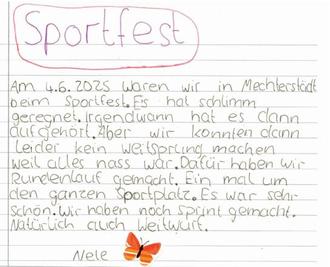 Sportfest
Am 4.6.2025 waren wir in Mechterstädt
beim Sportfest. Es hat schlimm
geregnet. Irgendwann hat es dann
aufgehört. Aber wir konnten dann
leider kein Weitsprung machen
weil alles nass war. Dafür haben wir
Rundenlauf gemacht. Ein mal um
den ganzen Sportplatz. Es war sehr
schön. Wir haben noch Sprint gemacht.
Natürlich auch Weitwurf.
Nele